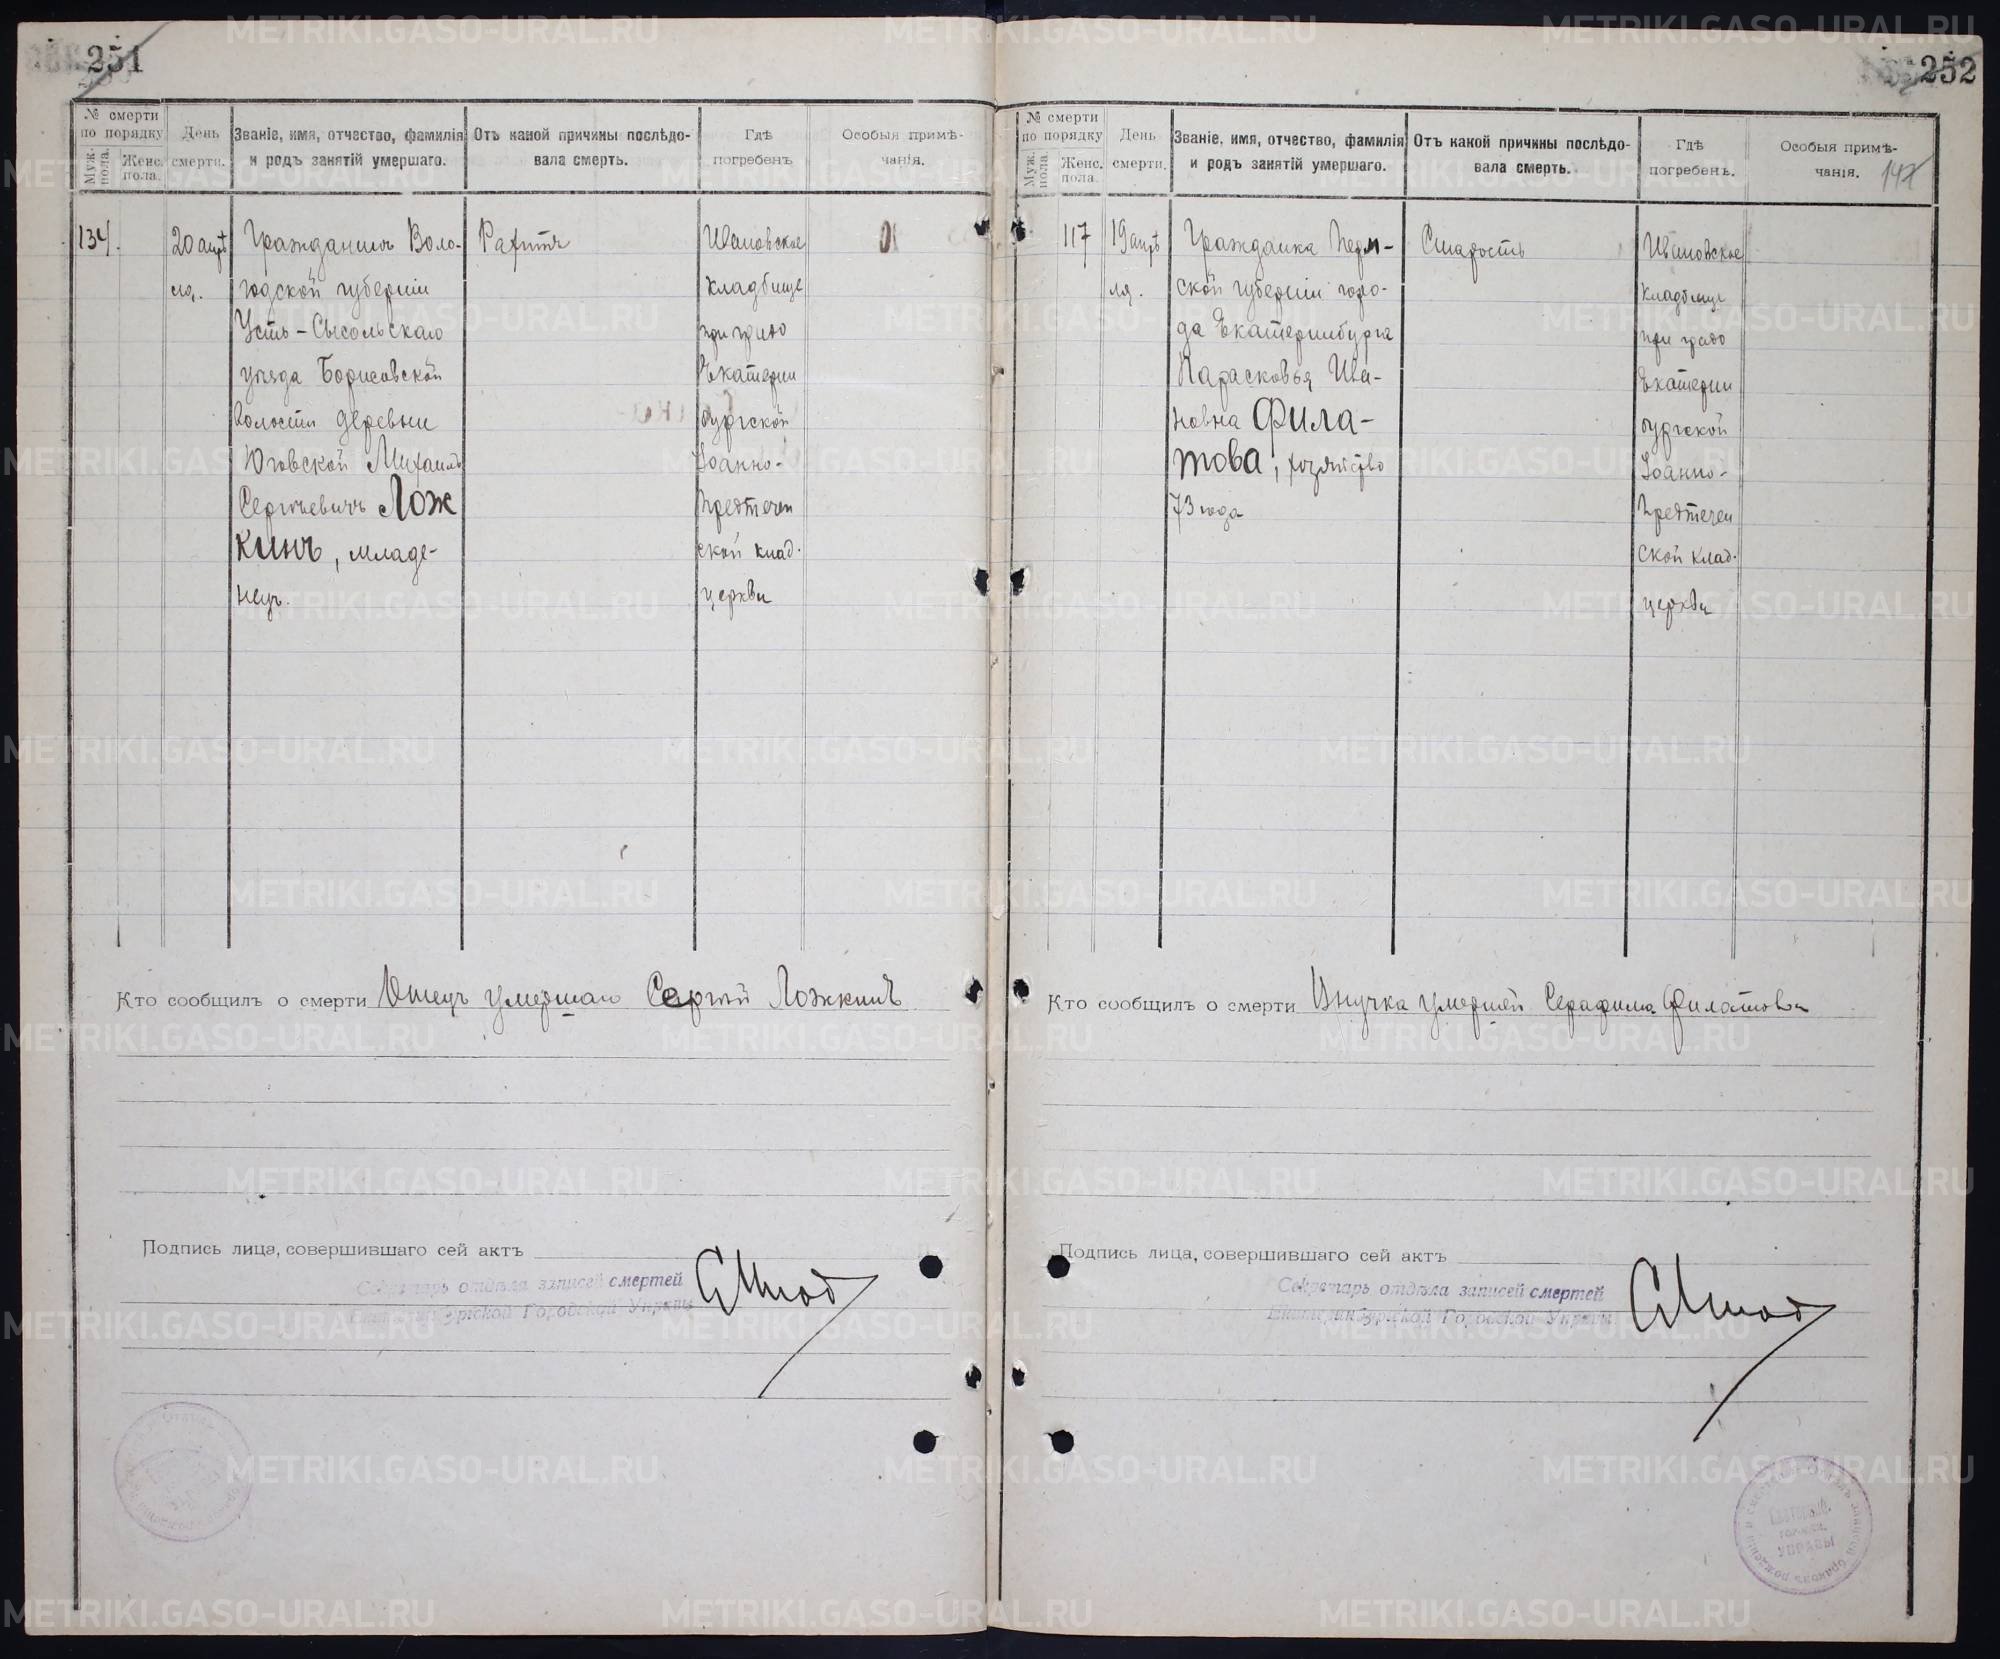 251
№ смерти по порядку
Муж. пола.
Женс. пола.
День смерти.
Званіе, имя, отчество, фамилія и родъ занятій умершаго.
Отъ какой причины послѣдовала смерть.
Гдѣ погребенъ
Особыя примѣчанія.
134.
20 апрѣ
ля.
Гражданинъ Воло-
годской губерніи
Усть-Сысольскаго
уѣзда Борисовской
волости деревни
Юговской Михаилъ
Сергѣевичъ Лож
кинъ, младе-
нецъ.
Рахитъ
Ивановское
кладбище
при градо
Екатерин
бургской
Іоанно-
Предтечен
ской клад.
церкви
Кто сообщилъ о смерти Отецъ умершаго Сергѣй Ложкинъ
Подпись лица, совершившаго сей актъ
Секретарь отдѣла записей смертей
Екатеринбургской Городской Управы
252
147
№ смерти по порядку
Муж. пола.
Женс. пола.
День смерти.
Званіе, имя, отчество, фамилія и родъ занятій умершаго.
Отъ какой причины послѣдовала смерть.
Гдѣ погребенъ.
Особыя примѣчанія.
117
19 апрѣ
ля.
Гражданка Перм-
ской губерніи горо-
да Екатеринбурга
Парасковья Ива-
новна Фила-
това, хозяйство
73 года
Старость
Ивановское
кладбище
при градо
Екатерин
бургской
Іоанно-
Предтечен
ской клад.
церкви
Кто сообщилъ о смерти Внучка умершей Серафима Филатова
Подпись лица, совершившаго сей актъ
Секретарь отдѣла записей смертей
Екатеринбургской Городской Управы
METRIKI.GASO-URAL.RU